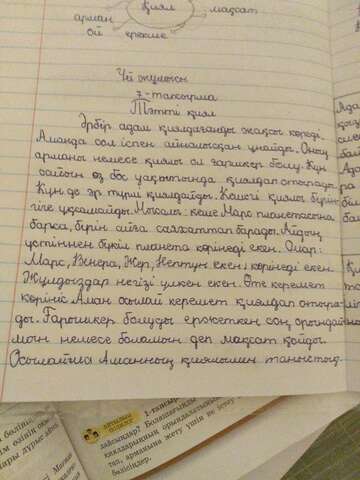 Қиял
мақсат
арман
ой
ерекше
Үй жұмысы
7-тапсырма
Тәтті қиял
Әрбір адам қиялдағанды жақсы көреді.
Аманда сол іспен айналысқан ұнайды. Оның
арманы немесе қиялы ол ғарышкер болу. Күн
сайын өз бос уақытында қиялдап отырады.
Күнде әр түрлі қиялдайды. Кешегі қиялы бүгін-
гіге ұқсамайды. Мысалы: кеше Марс планетасына
барса, бүгін айға саяхаттап барады. Айдың
үстіннен бүкіл планета көрінеді екен. Олар:
Марс, Венера, Жер, Нептун екен көрінеді екен.
Жұлдыздар негізі үлкен екен. Өте керемет
көрініс Аман осылай керемет қиялдап отыра-
ды. Ғарышкер болуды ержеткен соң орындай-
мын немесе боламын деп мақсат қойды.
Осылайша Аманның қиялымен таныстық.
1-тапсыр
Болашағынды
қиялдарының орындалатынына
тап, арманына жету үшін не істеу